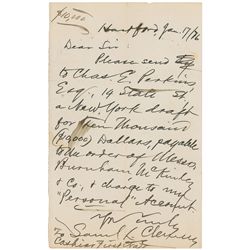 $10,000
Hartford Jan. 17/76
Dear Sir:
Please send
to Chas E. Perkins
Esq., 14 State St
a New York draft
for Ten Thousand
($10,000) Dollars, payable
to the order of Messrs.
Burnham McKinley
& Co., & charge to my
"Personal" Account
Yrs Truly
Saml. L. Clemens
To
Cashier First Nat